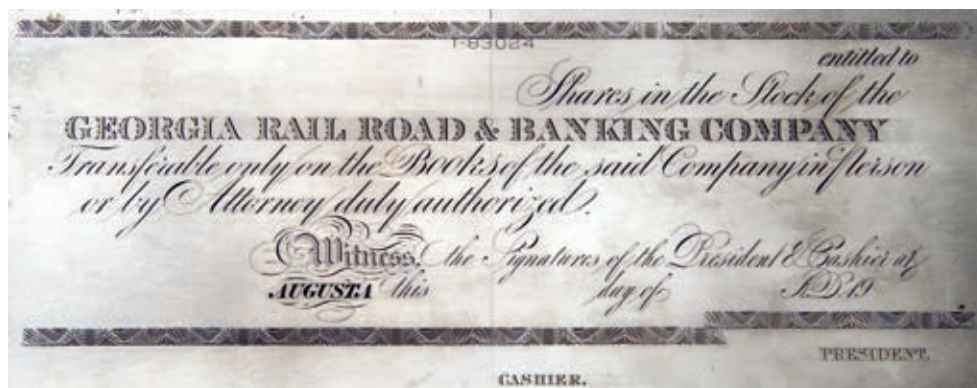 1-83024
entitled to
Shares in the Stock of the
GEORGIA RAIL ROAD & BANKING COMPANY
Transferable only on the Books of the said Company in person
or by Attorney duly authorized.
Witness, the Signatures of the President & Cashier at
AUGUSTA this day of A.D. 19
PRESIDENT.
CASHIER.